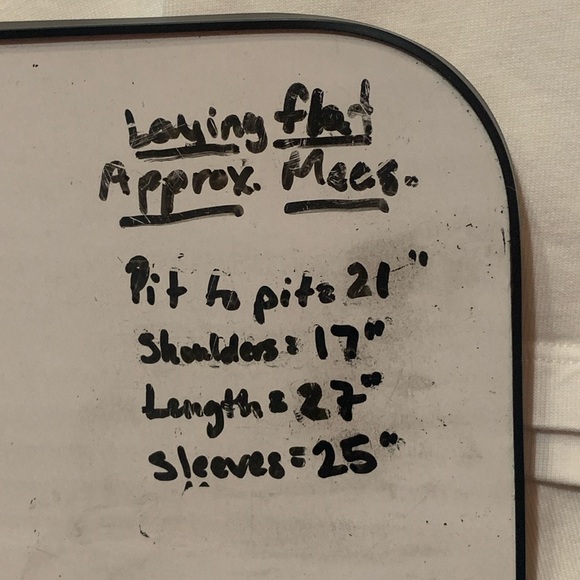 Laying flat
Approx. Meas.
Pit to pit= 21"
Shoulders= 17"
Length= 27"
Sleeves= 25"